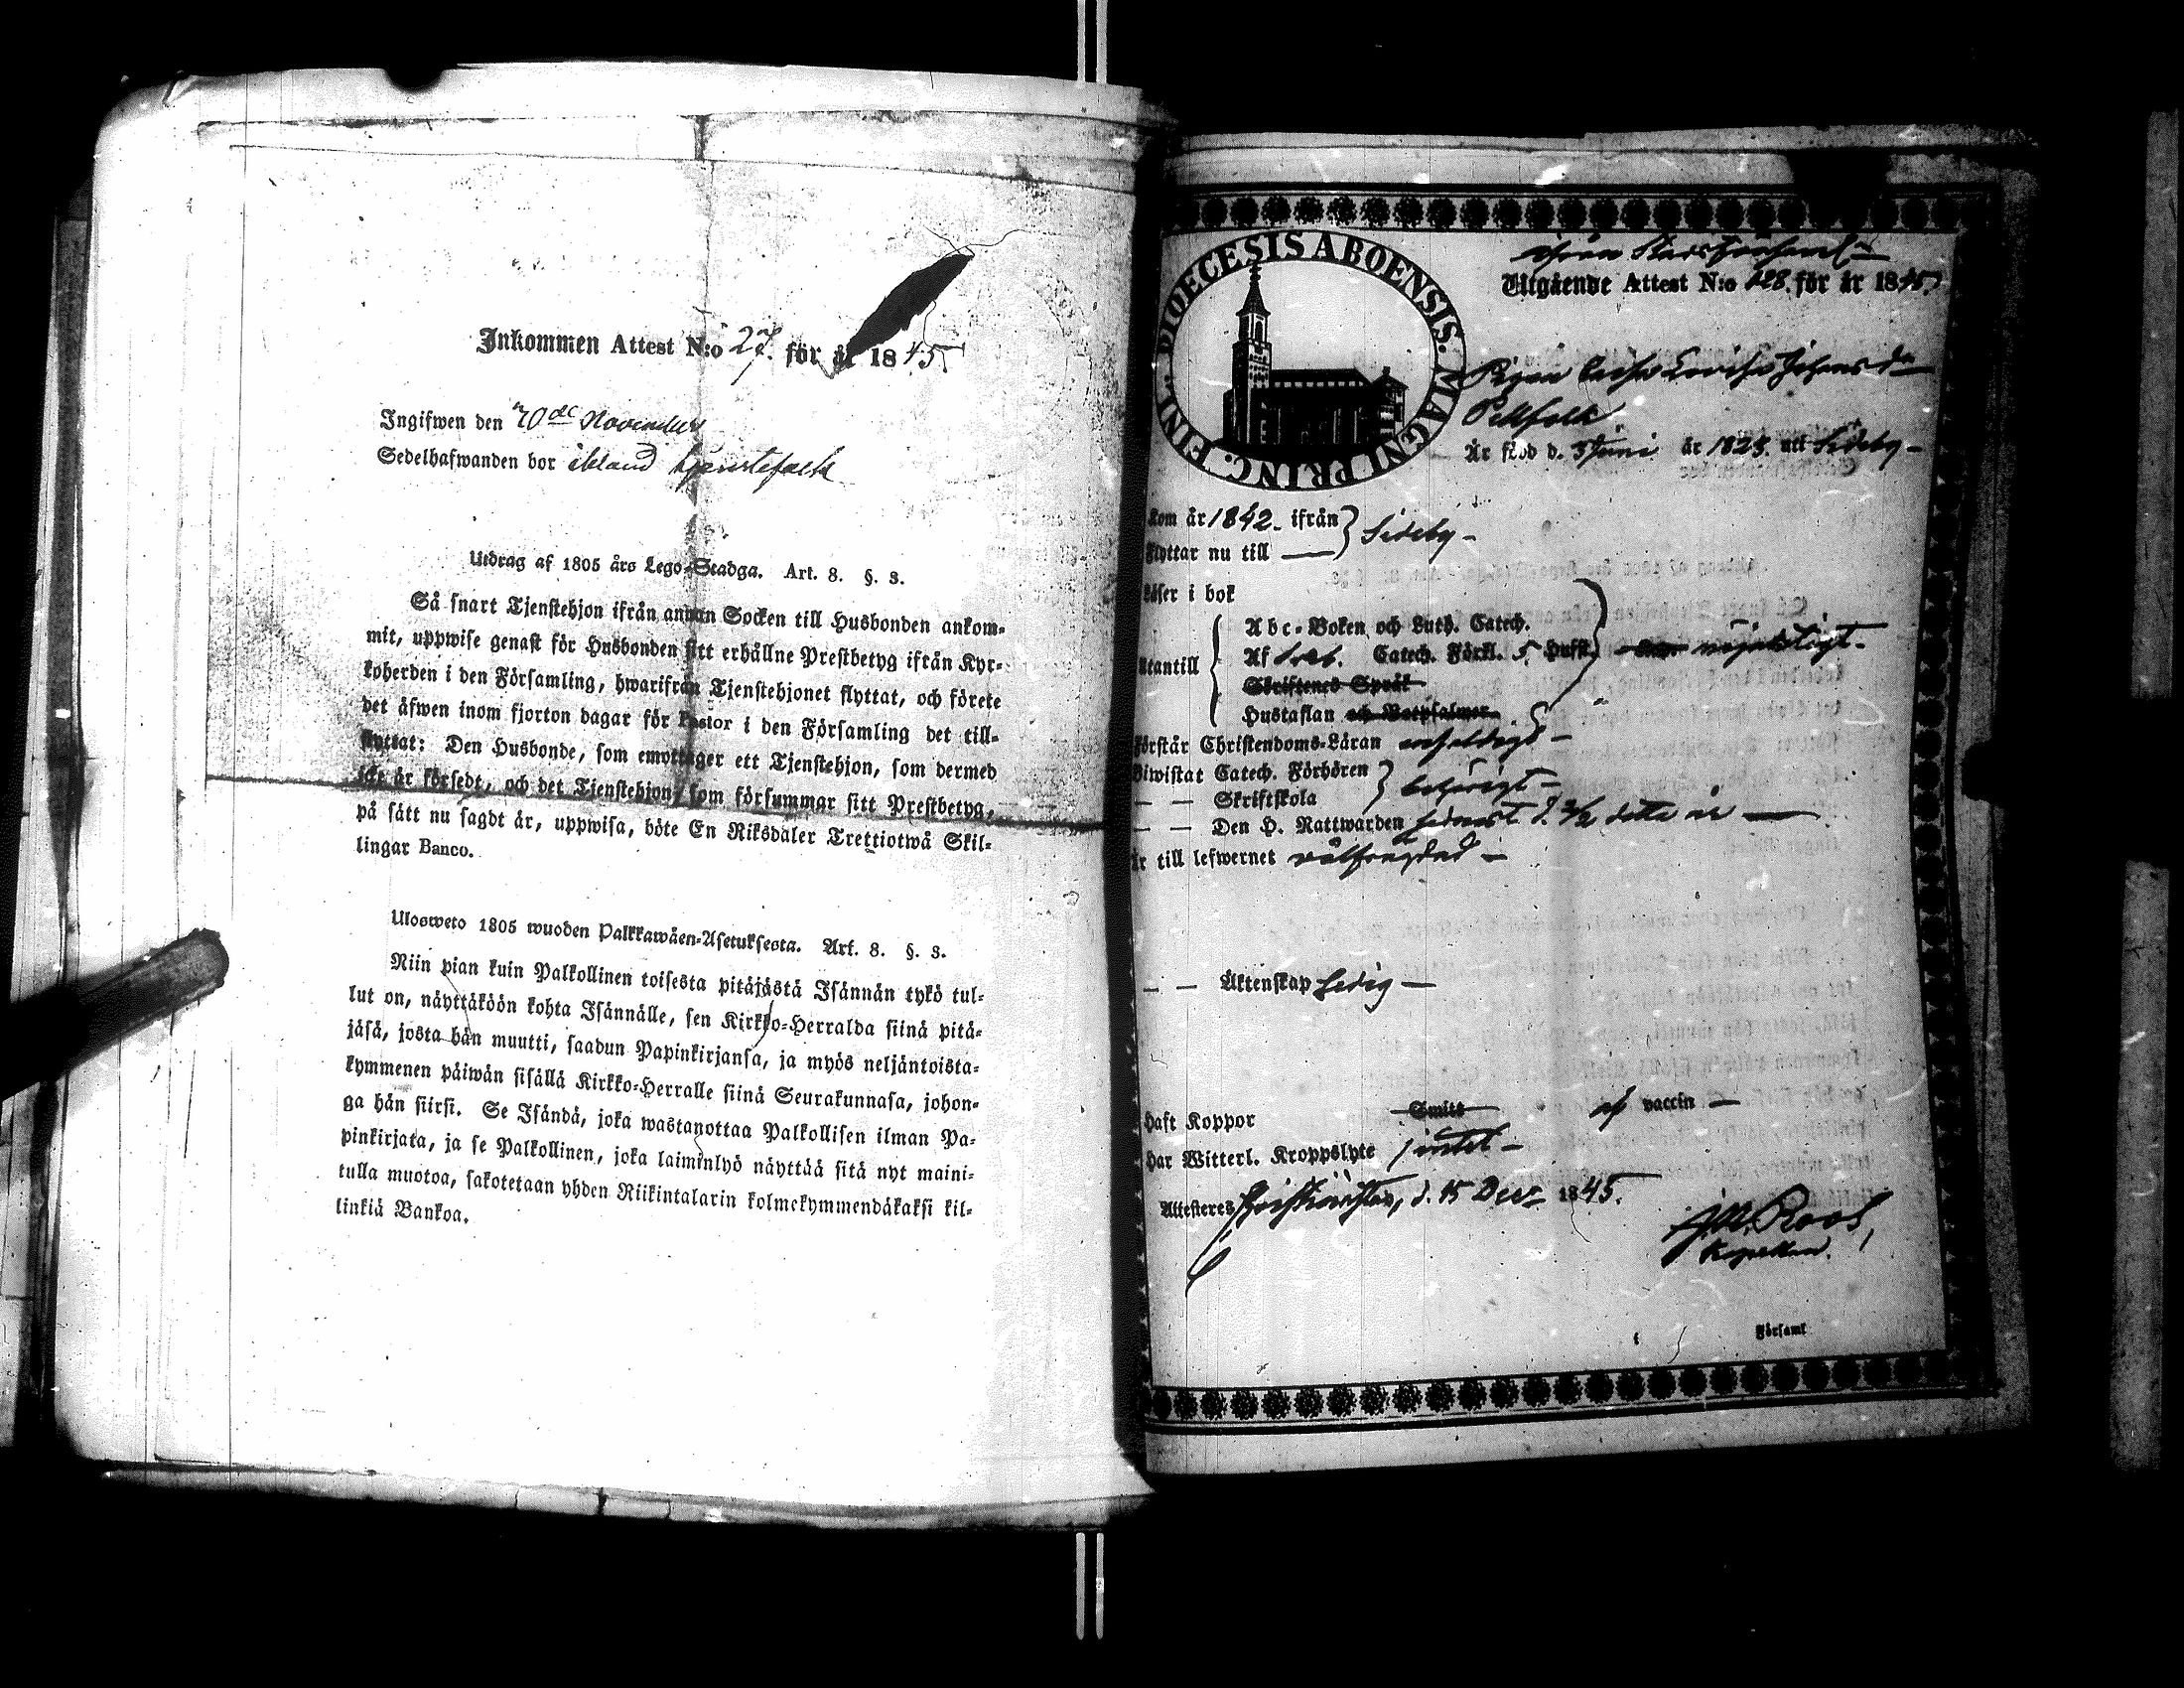 Inkommen Attest N:o 27. för år 1845.
Ingifwen den 20de November
Sedelhafwanden bor ibland tjenstefolk
Utdrag af 1805 års Lego-Stadga. Art. 8. §. 3.
Så snart Tjenstehjon ifrån annan Socken till Husbonden ankom-
mit, uppwise genast för Husbonden sitt erhållne Prestbetyg ifrån Kyr-
koherden i den Församling, hwarifrån Tjenstehjonet flyttat, och förete
det äfwen inom fjorton dagar för Pastor i den Församling det till-
flyttat: Den Husbonde, som emottager ett Tjenstehjon, som dermed
icke är försedt, och det Tjenstehjon, som försummar sitt Prestbetyg,
på sätt nu sagdt är, uppwisa, böte En Riksdaler Trettiotwå Skil-
lingar Banco.
Ulosweto 1805 wuoden Palkkawäen-Asetuksesta. Art. 8. §. 3.
Niin pian kuin Palkollinen toisesta pitäjästä Isännän tykö tul-
lut on, näyttäköön kohta Isännälle, sen Kirkko-Herralda siinä pitä-
jäsä, josta hän muutti, saadun Papinkirjansa, ja myös neljäntoista-
kymmenen päiwän sisällä Kirkko-Herralle siinä Seurakunnasa, johon-
ga hän siirsi. Se Isändä, joka wastanottaa Palkollisen ilman Pa-
pinkirjata, ja se Palkollinen, joka laiminlyö näyttää sitä nyt maini-
tulla muotoa, sakotetaan yhden Riikintalarin kolmekymmendäkaksi kil-
linkiä Bankoa.
DIOECESIS ABOENSIS. MAGNI PRINC. FINL.
Utgående Attest N:o 128. för år 1845
Pigan Lovisa Johansdr
Är född d. 3 Juni år 1823. uti Sideby -
Kom år 1842. ifrån } Sideby -
Flyttar nu till
Läser i bok
Abc-Boken och Luth. Catech.
Utantill Af Catech. Förkl. 5. Hufst. nöjaktigt.
Skriftenes Språk
Hustaflan och Botpsalmer.
Förstår Christendoms-Läran
Biwistat Catech. Förhören } behörigt -
— — Skriftskola
— — Den H. Nattwarden sednast d. detta år
Är till lefwernet välfrejdad -
— — Äktenskap Ledig -
Haft Koppor Smitt af vaccin -
Har Witterl. Kroppslyte intet -
Attesteras Christinestad, d. 15 Decr 1845.
Roos,
Kapellan.
Församl